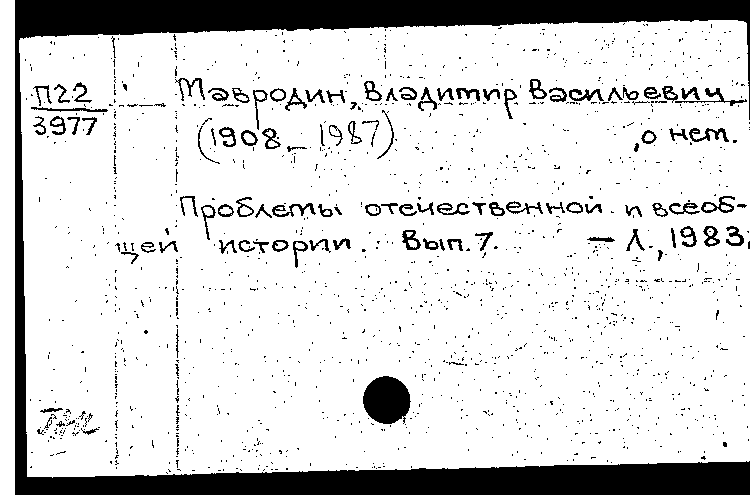 П22
3977
Мавродин, Владимир Васильевич,
(1908 - 1987)
, о нем.
Проблемы отечественной и всеоб-
щей истории. Вып. 7. - Л., 1983.